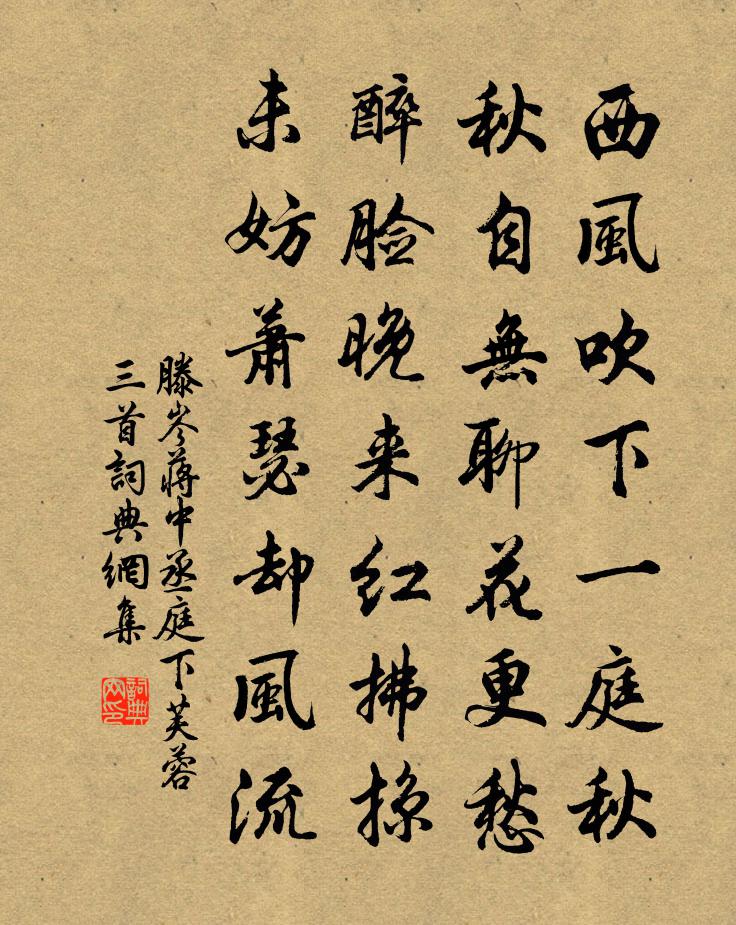 西風吹下一庭秋
秋自無聊花更愁
醉脸晚来红拂掠
未妨蕭瑟却風流
滕岑蒋中丞庭下芙蓉
三首詞典網集
詞典
网印